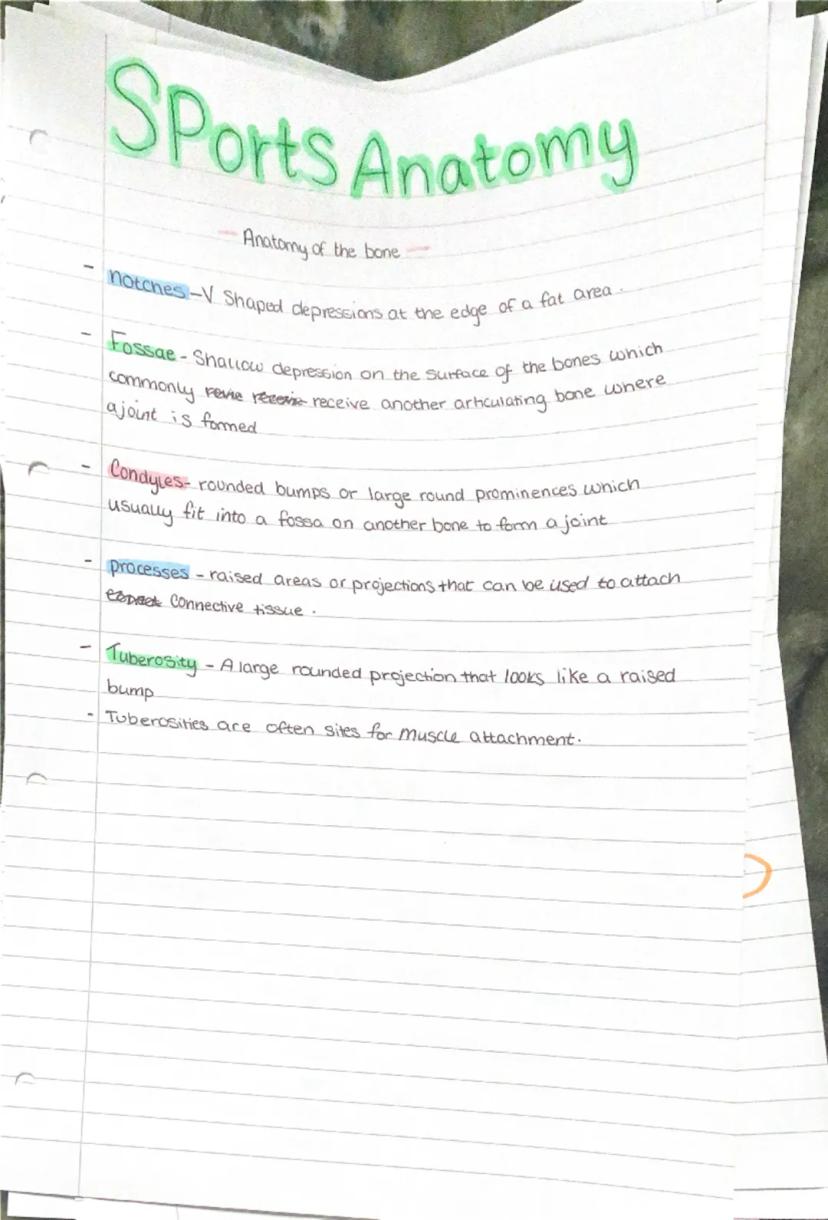 SPorts Anatomy
- Anatomy of the bone -
- notches - V Shaped depressions at the edge of a fat area.
- Fossae - Shallow depression on the surface of the bones which
commonly receive another articulating bone where
a joint is formed
- Condyles - rounded bumps or large round prominences which
usually fit into a fossa on another bone to form a joint
- processes - raised areas or projections that can be used to attach
connective tissue.
- Tuberosity - A large rounded projection that looks like a raised
bump
- Tuberosities are often sites for muscle attachment.